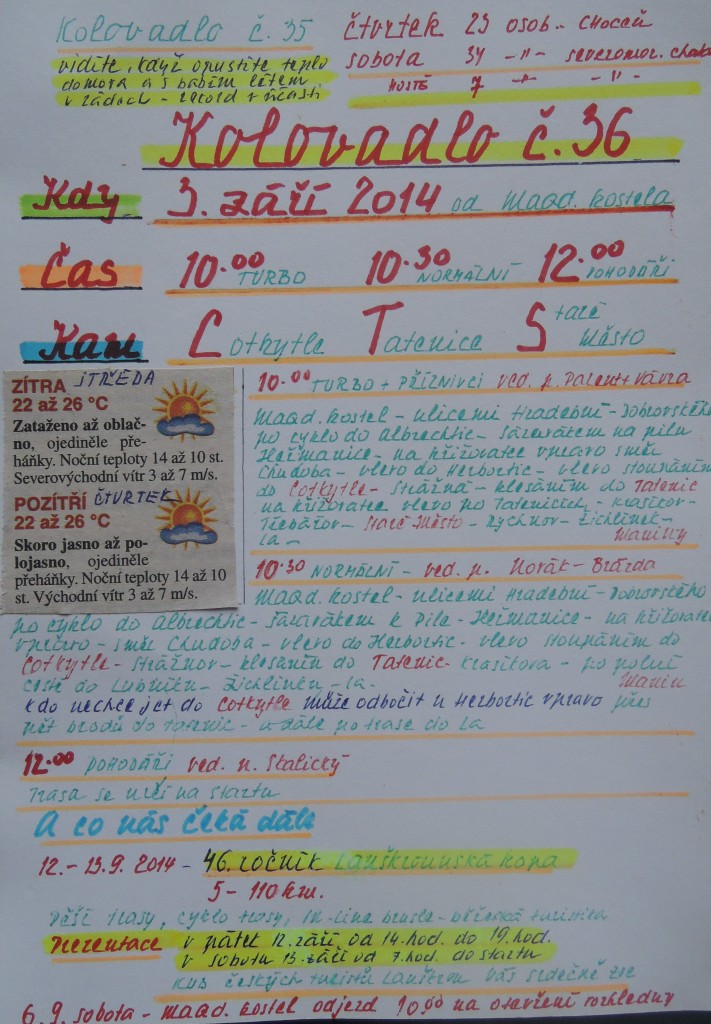 Kolovadlo č. 35
vidíte, když opustíte teplo
domova a s babím létem
v zádech - rekord v účasti
čtvrtek 23 osob.. CHOCEŇ
sobota 34 -"- severomor. chata
HOSTÉ 7 -"- -"-
Kolovadlo č. 36
Kdy 3. září 2014 od Magd. kostela
Čas 10.00 TURBO 10.30 NORMÁLNÍ 12.00 POHODÁŘI
Kam Cotkytle Tatenice Staré Město
ZÍTRA STŘEDA
22 až 26 °C
Zataženo až oblač-
no, ojediněle pře-
háňky. Noční teploty 14 až 10 st.
Severovýchodní vítr 3 až 7 m/s.
POZÍTŘÍ ČTVRTEK
22 až 26 °C
Skoro jasno až po-
lojasno, ojediněle
přeháňky. Noční teploty 14 až 10
st. Východní vítr 3 až 7 m/s.
10.00 TURBO + PŘÍZNIVCI ved. p. Palent + Vávra
Magd. kostel - ulicemi Hradební - Dobrovského
po cyklo do Albrechtic - Sázavátkem na pilu
Heřmanice - na křižovatce vpravo směr
Chudoba - vlevo do Herbortic - vlevo stoupáním
do Cotkytle - Strážná - klesáním do Tatenic
na křižovatce vlevo po Tatenicích - Krasíkov -
Třebařov - Staré Město - Rychnov - Žichlínek -
La -
10.30 NORMÁLNÍ - ved. p. Novák - Brázda
Magd. kostel - ulicemi Hradební - Dobrovského
po cyklo do Albrechtic - Sázavátkem k Pile - Heřmanice - na křižovatce
vpravo - směr Chudoba - vlevo do Herbortic - vlevo stoupáním do
Cotkytle - Strážnov - klesáním do Tatenic - Krasíkova - po polní
cestě do Lubníku - Žichlínku - La -
kdo nechce jet do Cotkytle může odbočit u Herbortic vpravo přes
pět brodů do Tatenic - a dále po trase do La
12.00 POHODÁŘI ved. p. Stalický
Trasa se určí na startu
A co nás čeká dále
12. - 13.9. 2014 - 46. ročník Lanškrounská kopa
5 - 110 km.
Pěší trasy, cyklo trasy, in-line brusle - běžecká turistika
Prezentace v pátek 12. září od 14. hod. do 19. hod.
v sobotu 13. září od 7. hod. do startu
KLUB českých turistů Lanškroun Vás srdečně zve
6. 9. sobota - Magd. kostel odjezd 10.00 na otevření rozhledny